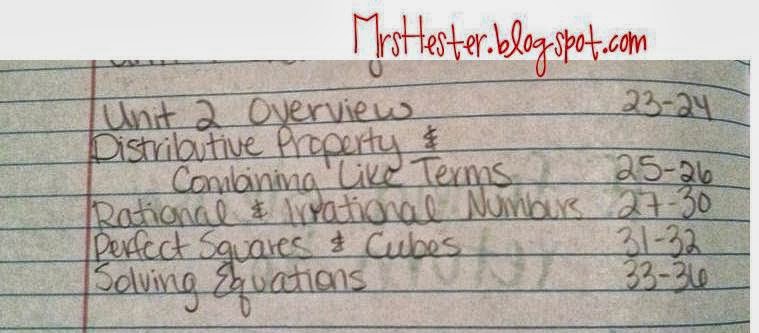 MrsHester.blogspot.com
Unit 2 Overview 23-24
Distributive Property &
Combining Like Terms 25-26
Rational & Irrational Numbers 27-30
Perfect Squares & Cubes 31-32
Solving Equations 33-36